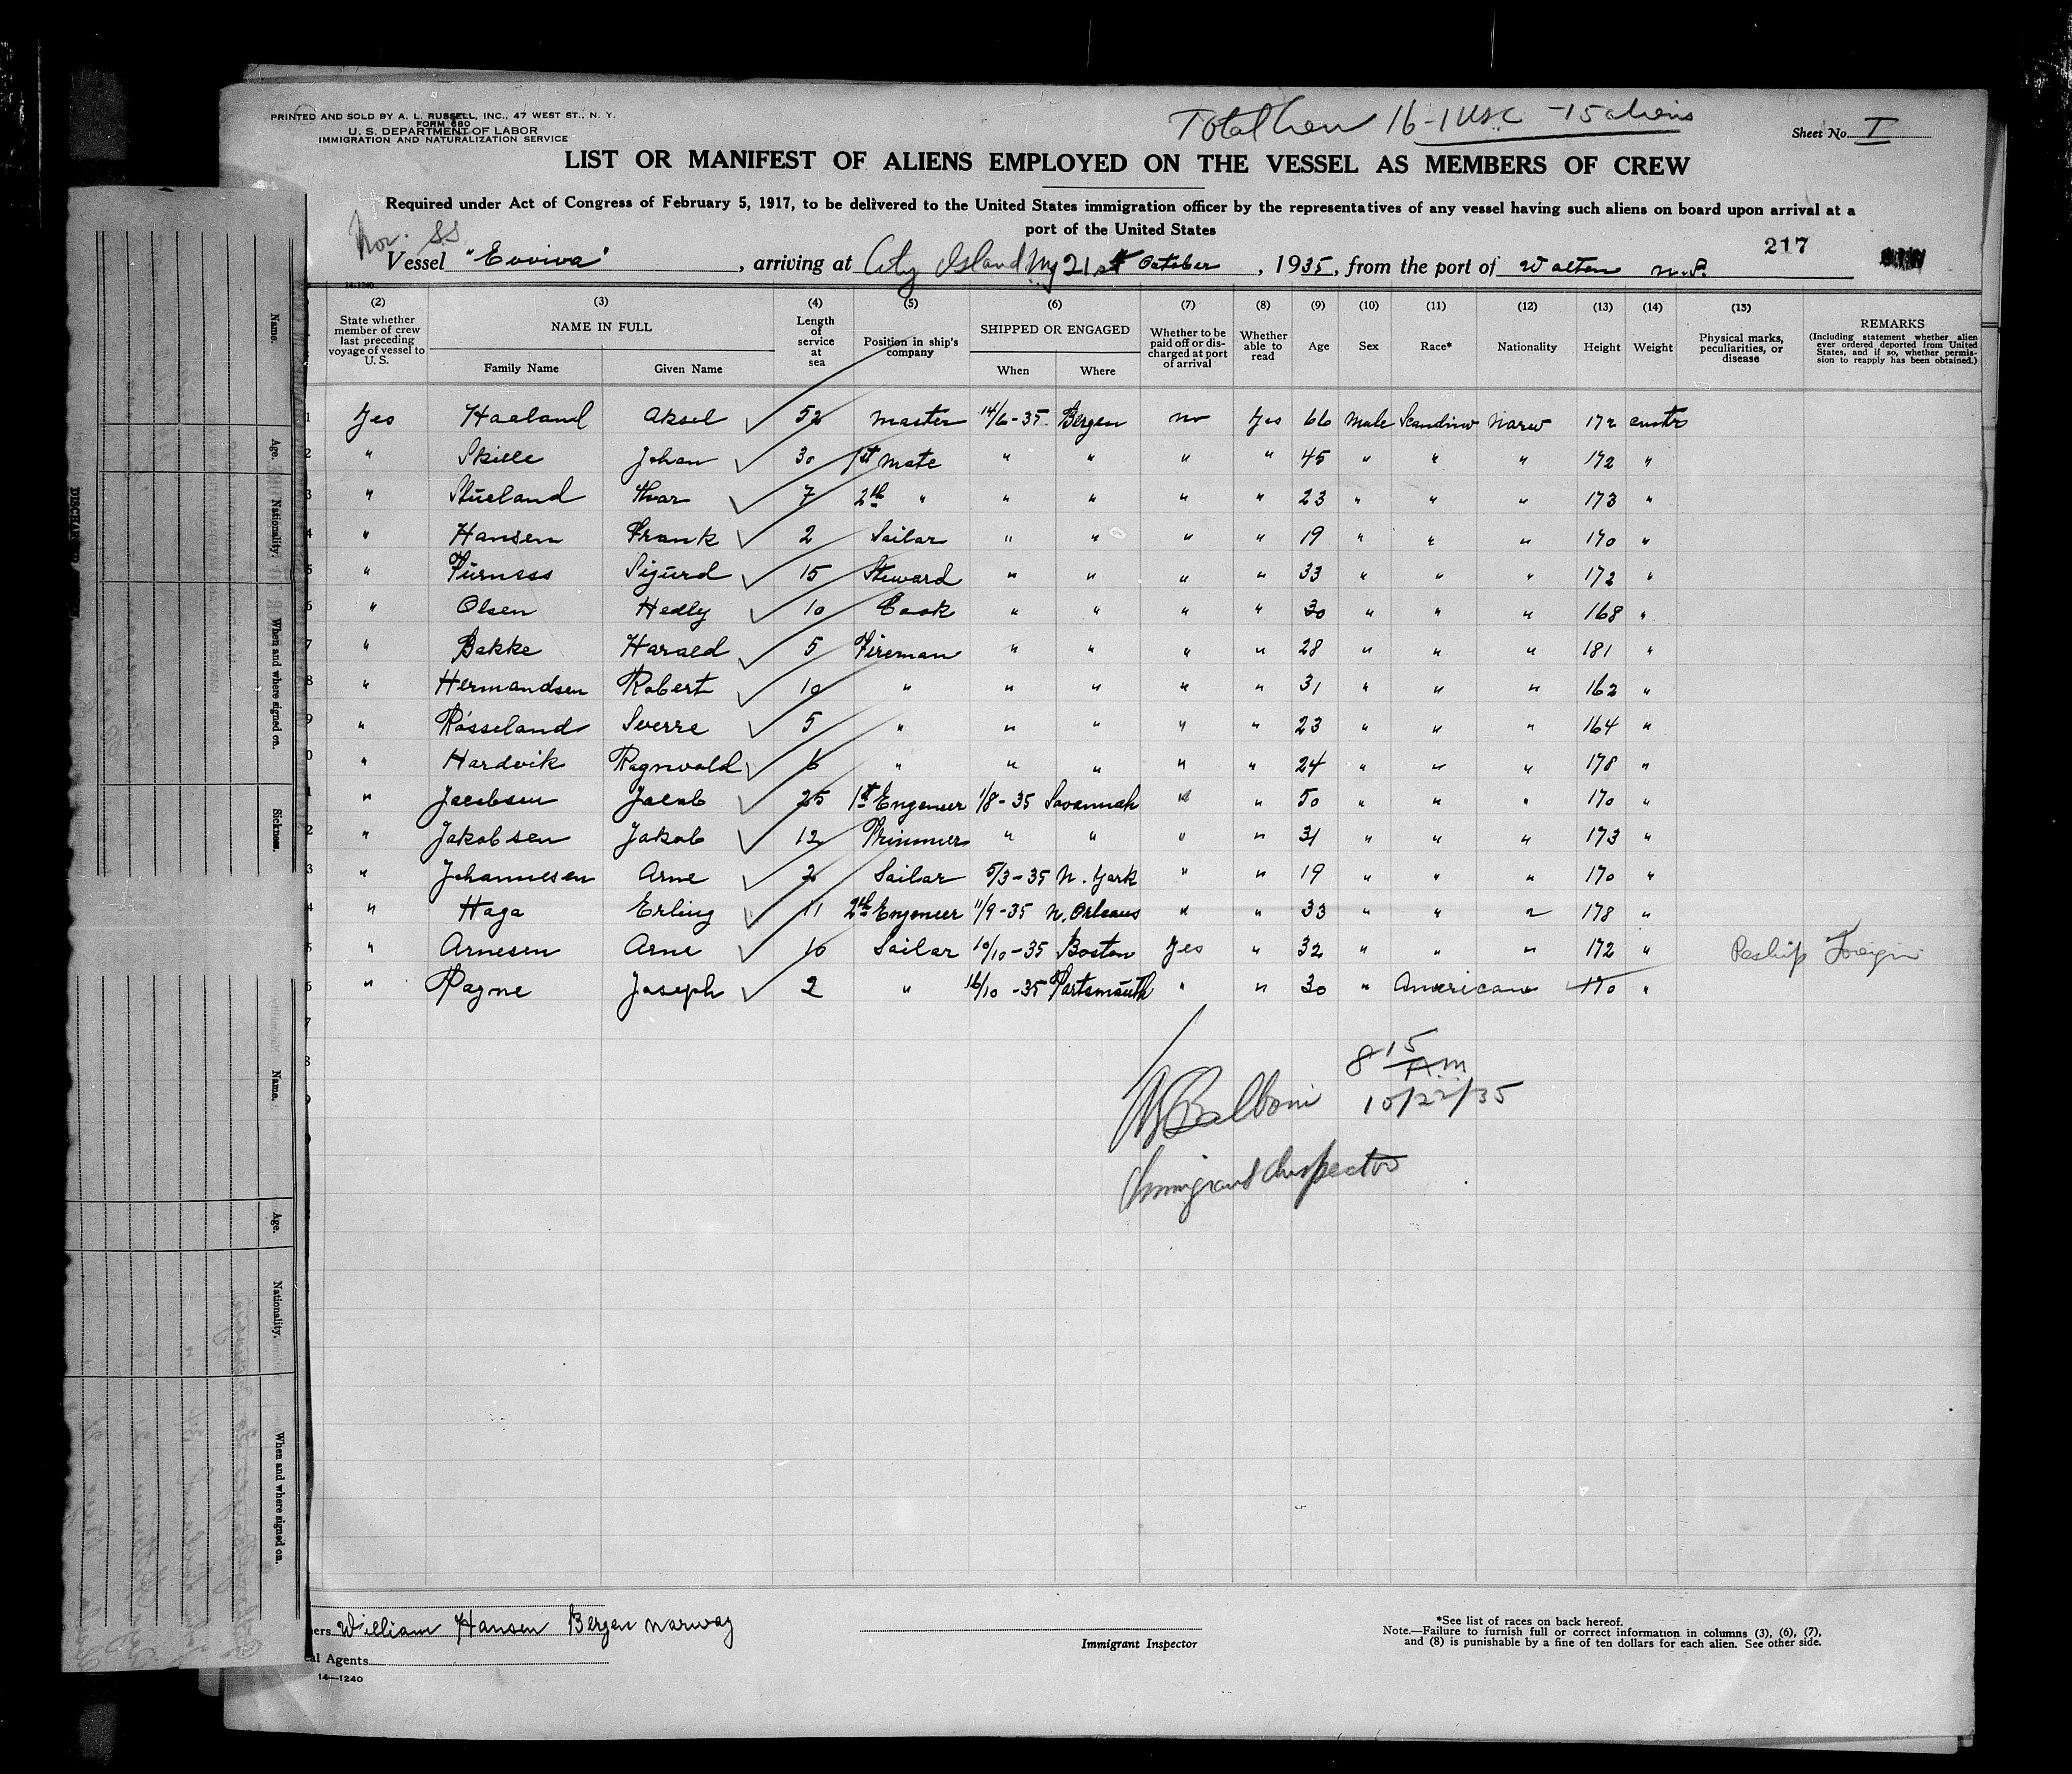 PRINTED AND SOLD BY A. L. RUSSELL, INC., 47 WEST ST., N. Y.
FORM 680
U. S. DEPARTMENT OF LABOR
IMMIGRATION AND NATURALIZATION SERVICE
Total Crew 16 - 1 USC - 15 aliens
Sheet No. I
LIST OR MANIFEST OF ALIENS EMPLOYED ON THE VESSEL AS MEMBERS OF CREW
Required under Act of Congress of February 5, 1917, to be delivered to the United States immigration officer by the representatives of any vessel having such aliens on board upon arrival at a
port of the United States
Nor. SS
217
Vessel "Evviva", arriving at City Island NY 21st October, 1935, from the port of Walton n.S.
14-1240
(2) (3) (4) (5) (6) (7) (8) (9) (10) (11) (12) (13) (14) (15)
State whether member of crew last preceding voyage of vessel to U. S. NAME IN FULL Family Name Given Name Length of service at sea Position in ship's company SHIPPED OR ENGAGED When Where Whether to be paid off or discharged at port of arrival Whether able to read Age Sex Race* Nationality Height Weight Physical marks, peculiarities, or disease REMARKS (Including statement whether alien ever ordered deported from United States, and if so, whether permission to reapply has been obtained.)
1 Yes Haaland Aksel ✓ 52 Master 14/6-35 Bergen no Yes 66 Male Scandinav Norw 172
2 " Skille Johan ✓ 30 1st Mate " " " " 45 " " " 172 "
3 " Stueland Ihar ✓ 7 2th " " " " " 23 " " " 173 "
4 " Hansen Frank ✓ 2 Sailor " " " " 19 " " " 170 "
5 " Furness Sigurd ✓ 15 Steward " " " " 33 " " " 172 "
6 " Olsen Hedly ✓ 10 Cook " " " " 30 " " " 168 "
7 " Bakke Harald ✓ 5 Fireman " " " " 28 " " " 181 "
8 " Hermandsen Robert ✓ 10 " " " " " 31 " " " 162 "
9 " Rosseland Sverre ✓ 5 " " " " " 23 " " " 164 "
0 " Hardvik Ragnvald ✓ 6 " " " " " 24 " " " 178 "
1 " Jacobsen Jacob ✓ 25 1st Engeneer 1/8-35 Savannah " " 50 " " " 170 "
2 " Jakobsen Jakob ✓ 12 Trimmer " " " " 31 " " " 173 "
3 " Johannesen Arne ✓ 2 Sailor 5/3-35 N. York " " 19 " " " 170 "
4 " Haga Erling ✓ 11 2th Engeneer 11/9-35 N. Orleans " " 33 " " " 178 "
5 " Arnesen Arne ✓ 10 Sailor 10/10-35 Boston Yes " 32 " " " 172 " Reship Foreign
6 " Payne Joseph ✓ 2 " 16/10-35 Portsmouth " " 30 " American 170 "
7
8 8 15 A.M.
Balboni 10/22/35
Immigrant Inspector
ners William Hansen Bergen Norway
cal Agents
14—1240
Immigrant Inspector
*See list of races on back hereof.
Note.—Failure to furnish full or correct information in columns (3), (6), (7),
and (8) is punishable by a fine of ten dollars for each alien. See other side.
Name.
Age.
Nationality.
When and where signed on.
Sickness.
Name.
Age.
Nationality.
When and where signed on.